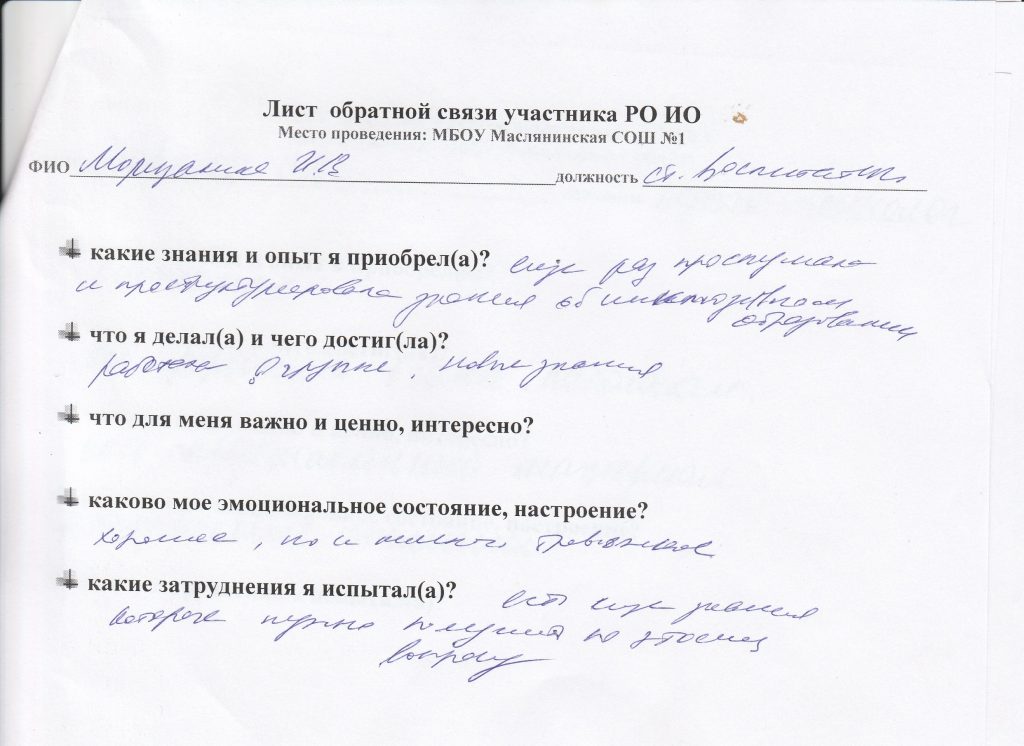 Лист обратной связи участника РО ИО
Место проведения: МБОУ Маслянинская СОШ №1
ФИО И.В должность ст. воспитатель
какие знания и опыт я приобрел(а)? еще раз прослушала
и проструктурировала знания об инклюзивном
образовании
что я делал(а) и чего достиг(ла)?
работа в группе, новые знания
что для меня важно и ценно, интересно?
каково мое эмоциональное состояние, настроение?
хорошее, но и немного тревожное
какие затруднения я испытал(а)? есть еще знания
которые нужно получить по этому
вопросу